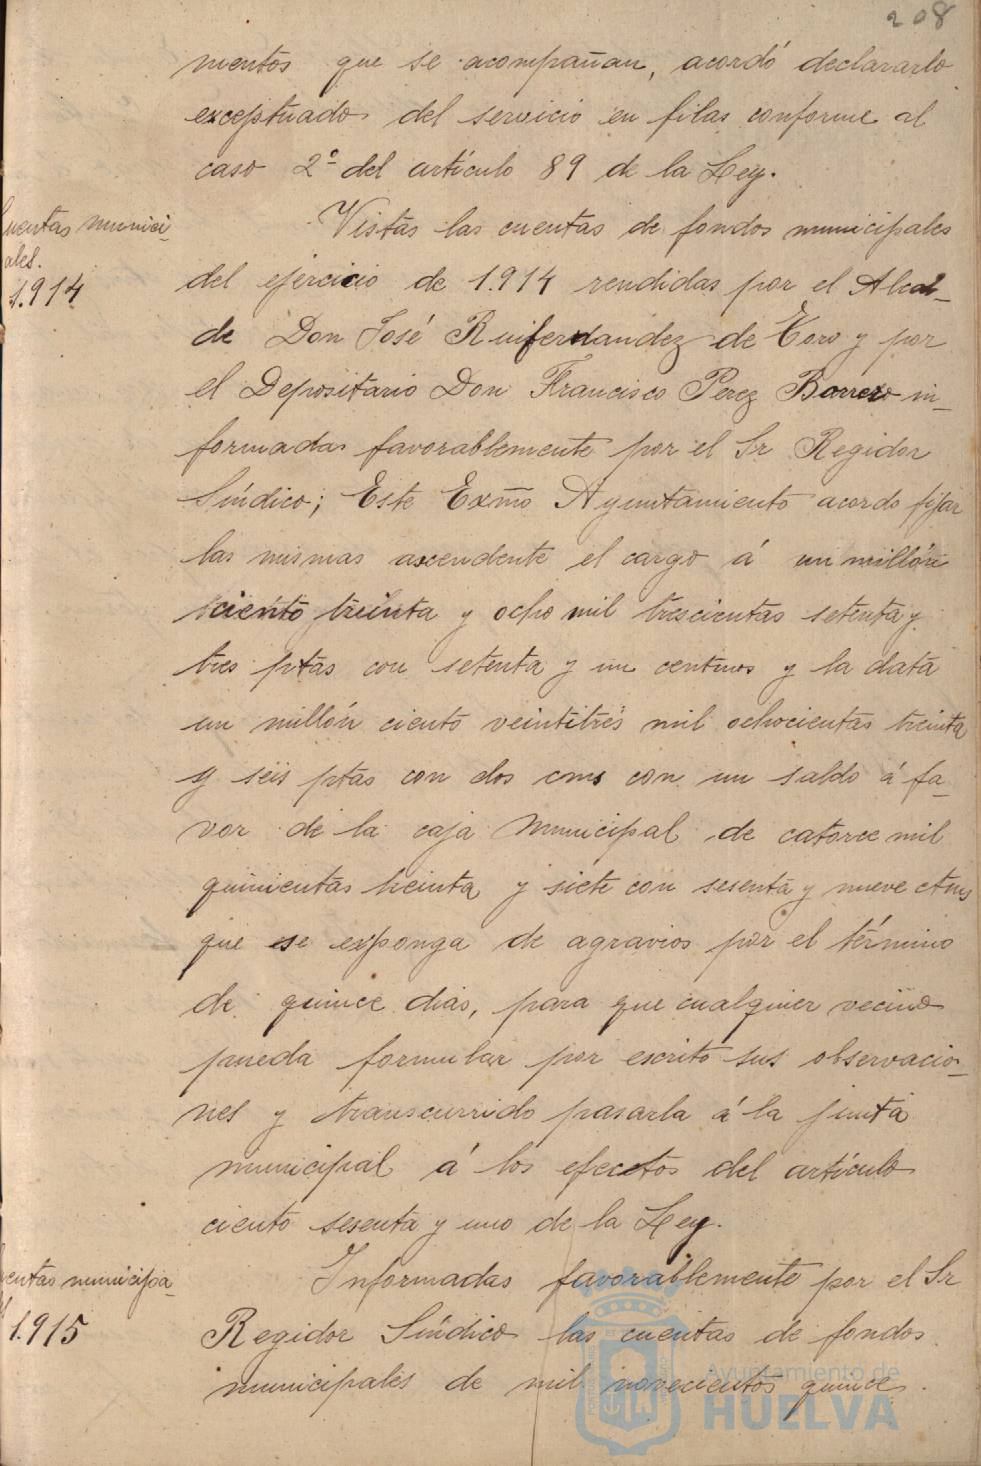 208
mentos que se acompañan, acordó declararlo
exceptuado del servicio en filas conforme al
caso 2º del artículo 89 de la Ley.
Cuentas munici-
pales.
1.914
Vistas las cuentas de fondos municipales
del ejercicio de 1.914 rendidas por el Alcal-
de Don José Ruifernandez de Toro y por
el Depositario Don Francisco Perez Barrero in-
formadas favorablemente por el Sr Regidor
Síndico; Este Exmo Ayuntamiento acordo fijar
las mismas ascendente el cargo á un millón
ciento treinta y ocho mil trescientas setenta y
tres ptas con setenta y un centmos y la data
un millón ciento veintitrés mil ochocientas treinta
y seis ptas con dos cms con un saldo á fa-
vor de la caja Municipal de catorce mil
quinientas treinta y siete con sesenta y nueve ctms
que se exponga de agravios por el término
de quince dias, para que cualquier vecino
pueda formular por escrito sus observacio-
nes y transcurrido pasarla á la junta
municipal á los efecctos del artículo
ciento sesenta y uno de la Ley.
entas municipa-
1.915
Informadas favorablemente por el Sr
Regidor Síndico las cuentas de fondos
municipales de mil novecientos quince.
Ayuntamiento de
HUELVA